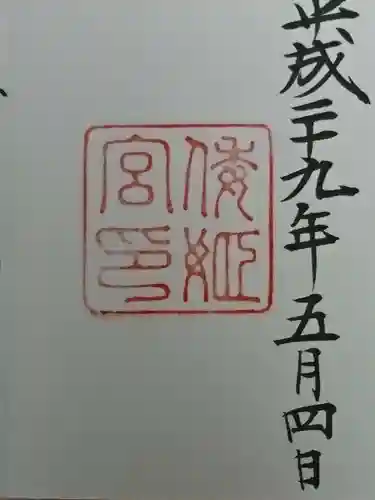 平成二十九年五月四日
倭姫
宮印